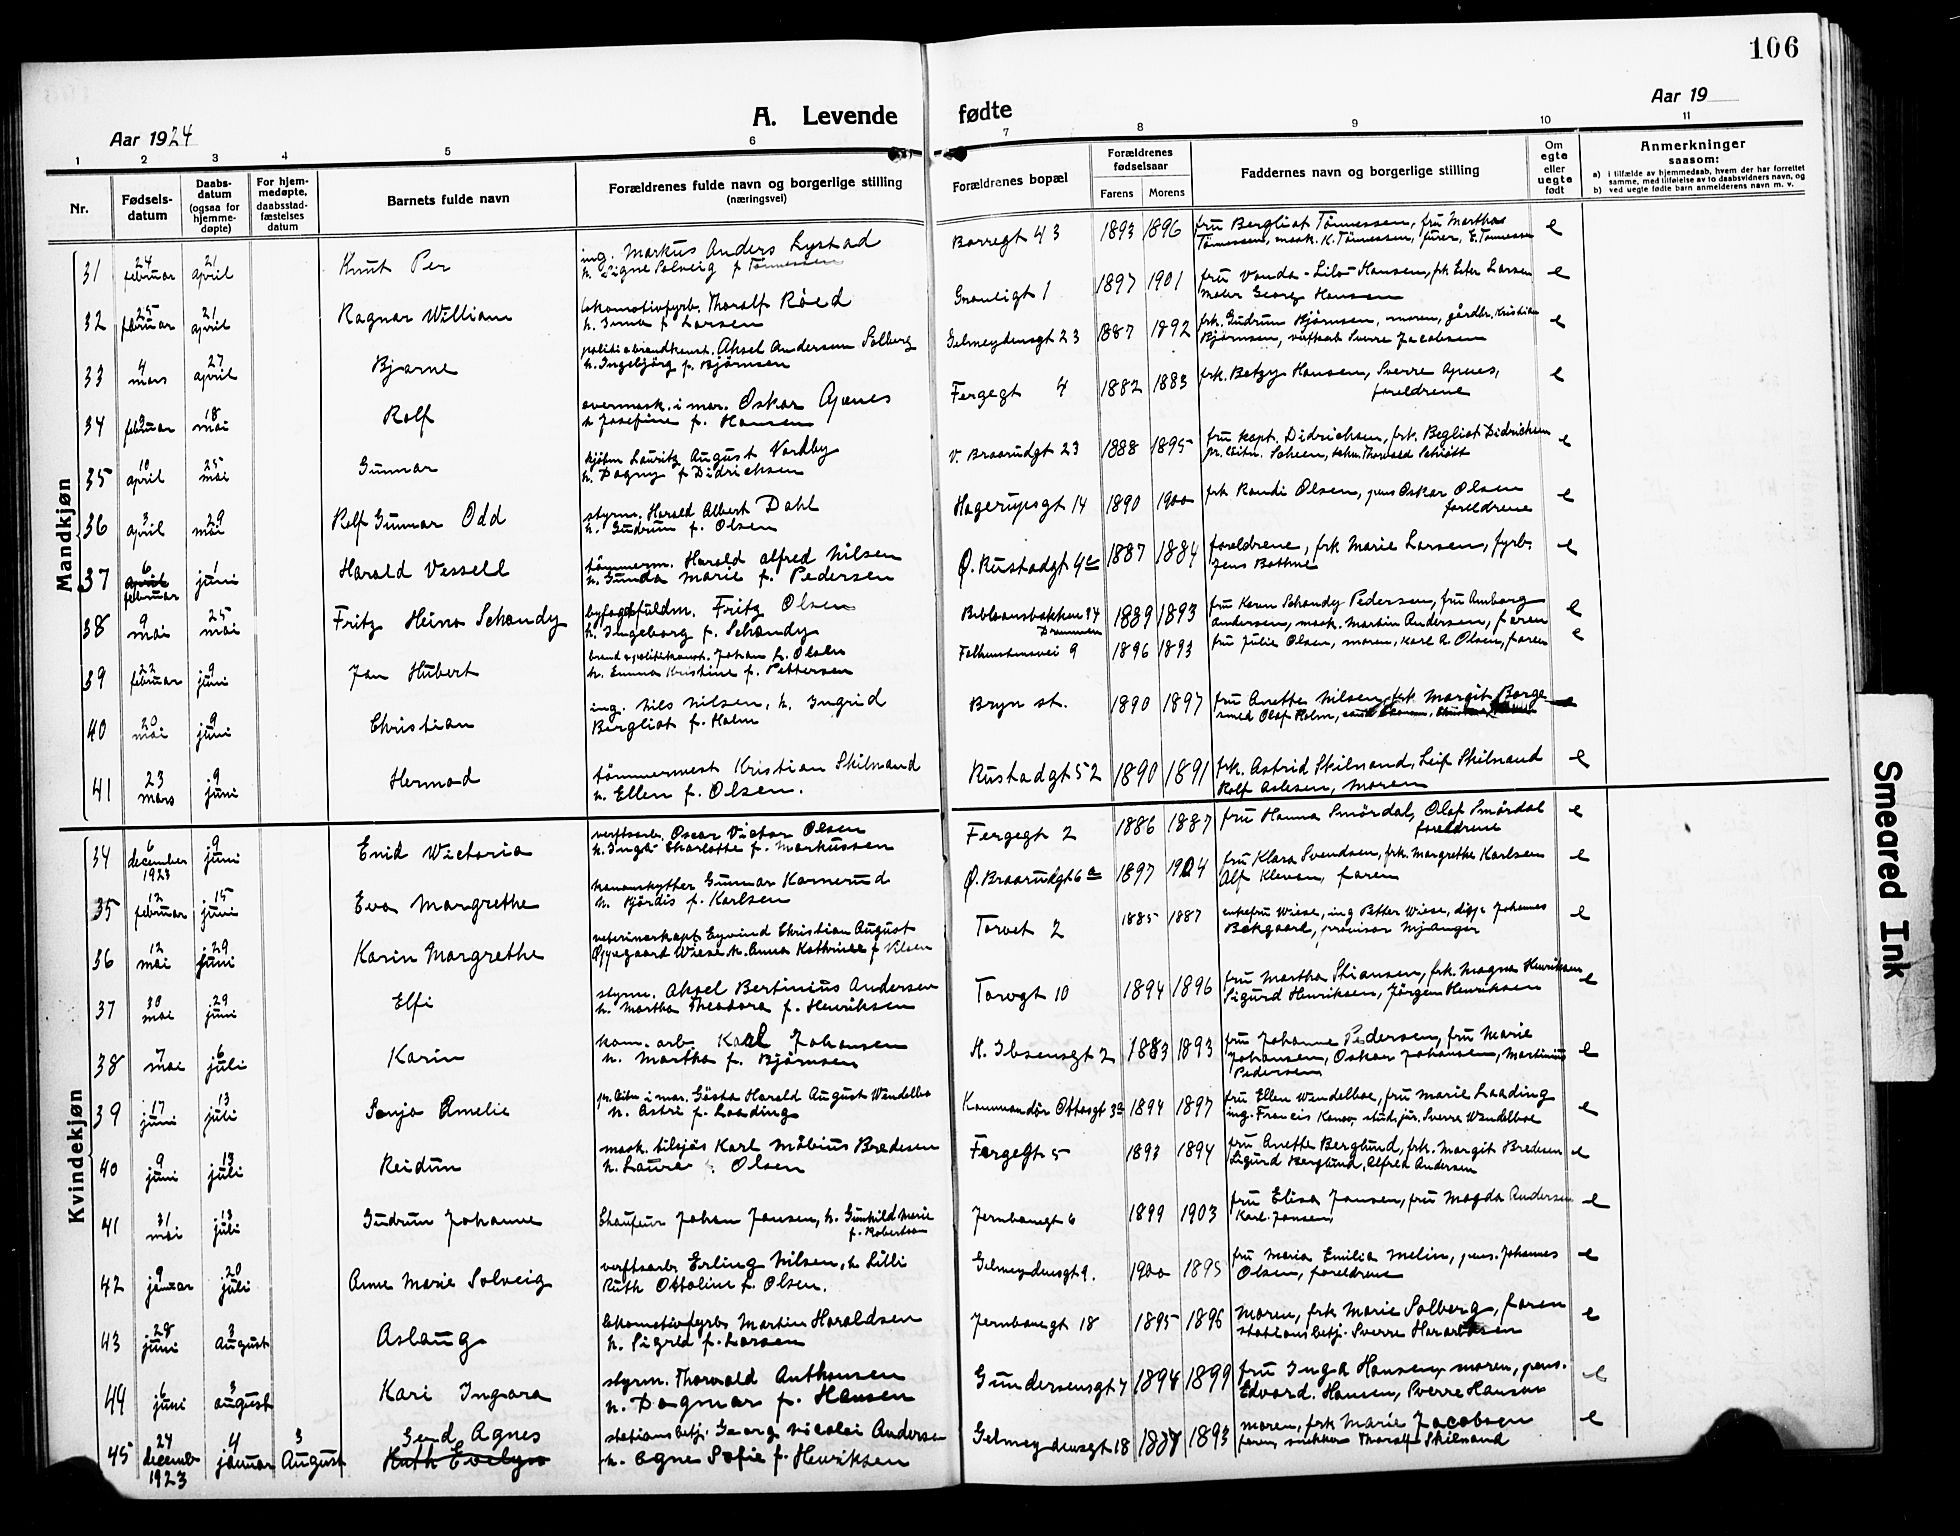 106
Aar 1924
A. Levende fødte
Aar 19
1 2 3 4 5 6 7 8 9 10 11
Nr.
Fødsels-
datum
Daabs-
datum
(ogsaa for
hjemme-
døpte)
For hjem-
medøpte,
daabsstad-
fæstelses
datum
Barnets fulde navn
Forældrenes fulde navn og borgerlige stilling
(næringsvei)
Forældrenes bopæl
Forældrenes
fødselsaar
Farens Morens
Faddernes navn og borgerlige stilling
Om
egte
eller
uegte
født
Anmerkninger
saasom:
a) i tilfælde av hjemmedaab, hvem der har forrettet
samme, med tilføielse av to daabsvidners navn, og
b) ved uegte fødte barn anmelderens navn m. v.
Mandkjøn
31 24 februar 21 april Knut Per ing. Markus Anders Lystad Borregt 43 1893 1896 fru Bergliot Tønnessen, fru Martha e
h. Signe Solveig f Tønnessen Tønnessen, mask. K. Tønnessen, furer, E. Tønnessen
32 25 februar 21 april Ragnar William lokomotivfyrb. Thoralf Røed Gronligt 1 1897 1901 fru Vanda-Lilo Hansen, frk Ester Larsen e
h. Irma f Larsen maler Georg Hansen
33 4 mars 27 april Bjarne politi o brandkonst. Aksel Andersen Solberg Gelmeydensgt 23 1887 1892 frk. Gudrun Bjørnsen, moren, gårdbr. Kristian e
h. Ingebjørg f. Bjørnsen Bjørnsen, verftsarb Sverre Jacobsen
34 9 februar 18 mai Rolf overmask. i mar. Oskar Apenes Fergegt 4 1882 1883 frk. Betzy Hansen, Sverre Apnes, e
h Josefine f. Hansen foreldrene
35 10 april 25 mai Gunnar kjøbm Lauritz August Nordby V. Braarudgt 23 1888 1895 fru kapt. Didrichsen, frk. Begliot Didrichsen e
h. Dagny f Didrichsen pr. løitn. Scheen, tekn. Thorvald Schiøtt
36 3 april 29 mai Rolf Gunnar Odd styrm. Harald Albert Dahl Hagerupsgt 14 1890 1900 frk Randi Olsen, pens Oskar Olsen e
h. Gudrun f. Olsen foreldrene
37 6 april februar 1 juni Harald Vessell tømmerm. Harald Alfred Nilsen Ø. Rustadgt 4c 1887 1884 foreldrene, frk Marie Larsen, fyrb. e
h. Gunda Marie f. Pedersen Jens Bothne
38 9 mai 25 mai Fritz Heino Schandy byfogdfuldm. Fritz Olsen 14 Drammen 1889 1893 fru Karen Schandy Pedersen, fru Amborg e
h. Ingeborg f. Schandy Andersen, mask. Martin Andersen, faren
39 22 februar 9 juni Jan Hubert brand o politikonst. Johan F. Olsen Falkenstensvei 9 1896 1893 fru Julie Olsen, moren, Karl A Olsen, faren e
h. Emma Kristine f. Pettersen
40 20 mai 9 juni Christian ing. Nils Nilsen, h. Ingrid Bryn st. 1890 1897 fru Anette Nilsen, frk. Margit Borge e
Bergliot f. Holm smed Olaf Holm,
41 23 mars 9 juni Hermod tømmermest Kristian Skilnand Rustadgt 52 1890 1891 frk. Astrid Skilnand, Leif Skilnand e
h. Ellen f. Olsen. Rolf Aslesen, moren
Kvindekjøn
34 6 december 1923 9 juni Enid Victoria verftsarb. Oscar Victor Olsen Fergegt 2 1886 1887 fru Hanna Smørdal, Olaf Smørdal e
h. Inga Charlotte f. Markussen foreldrene
35 12 februar 15 juni Eva Margrethe kanonskytter Gunnar Karnerud Ø. Braarudgt 6a 1897 1904 fru Klara Svendsen, frk. Margrethe Karlsen e
h. Hjørdis f. Karlsen Alf Kleven, faren
36 12 mai 29 juni Karin Margrethe veterinærkapt. Eyvind Christian August Torvet 2 1885 1887 enkefru Wiese, ing Petter Wiese, disp. Johannes e
Oppegaard Wiese h. Anna Kathrine f Nilsen Bekgaard, provisor Nyanger
37 30 mai 29 juni Elfi styrm. Aksel Bertinius Andersen Torvgt 10 1894 1896 fru Martha Stiansen, frk. Magna Henriksen e
h. Martha Theodora f. Henriksen Sigurd Henriksen, Jørgen Henriksen
38 7 mai 6 juli Karin kom. arb. Karl Johansen H. Ibsensgt 2 1883 1893 fru Johanne Pedersen, fru Marie e
h. Martha f. Bjørnsen Johansen, Oskar Johansen, Martinius
Pedersen
39 17 juni 13 juli Sonja Amelie pr. løitn i mar. Gösta Harald August Wendelbo Kommandør Ottosgt 3a 1894 1897 fru Ellen Wendelboe, fru Marie Laading e
h. Astri f. Laading ing. Francis Kanov, stud. jur. Sverre Wendelboe
40 9 juni 13 juli Reidun mask. tilsjøs Karl Møbius Bredesen Fergegt 5 1893 1894 fru Anette Berglund, frk. Margit Bredesen e
h. Laura f. Olsen Sigurd Berglund, Alfred Andersen
41 31 mai 13 juli Gudrun Johanne Chaufeur Johan Jansen, h. Gunhild Marie Jernbanegt 6 1899 1903 fru Elisa Jansen, fru Magda Andersen e
f. Robertson Karl Jansen
42 9 januar 20 juli Anne Marie Solveig verftsarb. Erling Nilsen, h. Lilli Gelmeydensgt 9. 1900 1895 fru Maria Emilia Melin, pens. Johannes e
Ruth Ottoline f. Olsen. Olsen, foreldrene
43 28 juni 3 August Aslaug lokomotivfyrb. Martin Haraldsen Jernbanegt 18 1895 1896 moren, frk Marie Solberg, faren e
h. Sigrid f. Larsen stationsbetj. Sverre Haraldsen
44 6 juni 3 august Kari Ingara styrm. Thorvald Anthonsen Gundersensgt 7 1894 1899 fru Inga Hansen, moren, pens. e
h. Dagmar f. Hansen Edvard Hansen, Sverre Hansen
45 24 december 1923 4 januar 3 August Gerd Agnes stationsbetj. Georg Nicolai Andersen Gelmeydensgt 18 1893 moren, frk Marie Jacobsen e
Ruth Evelyn h. Agnes Sofie f. Henriksen faren, snekker Thoralf Skilnand
Smeared Ink